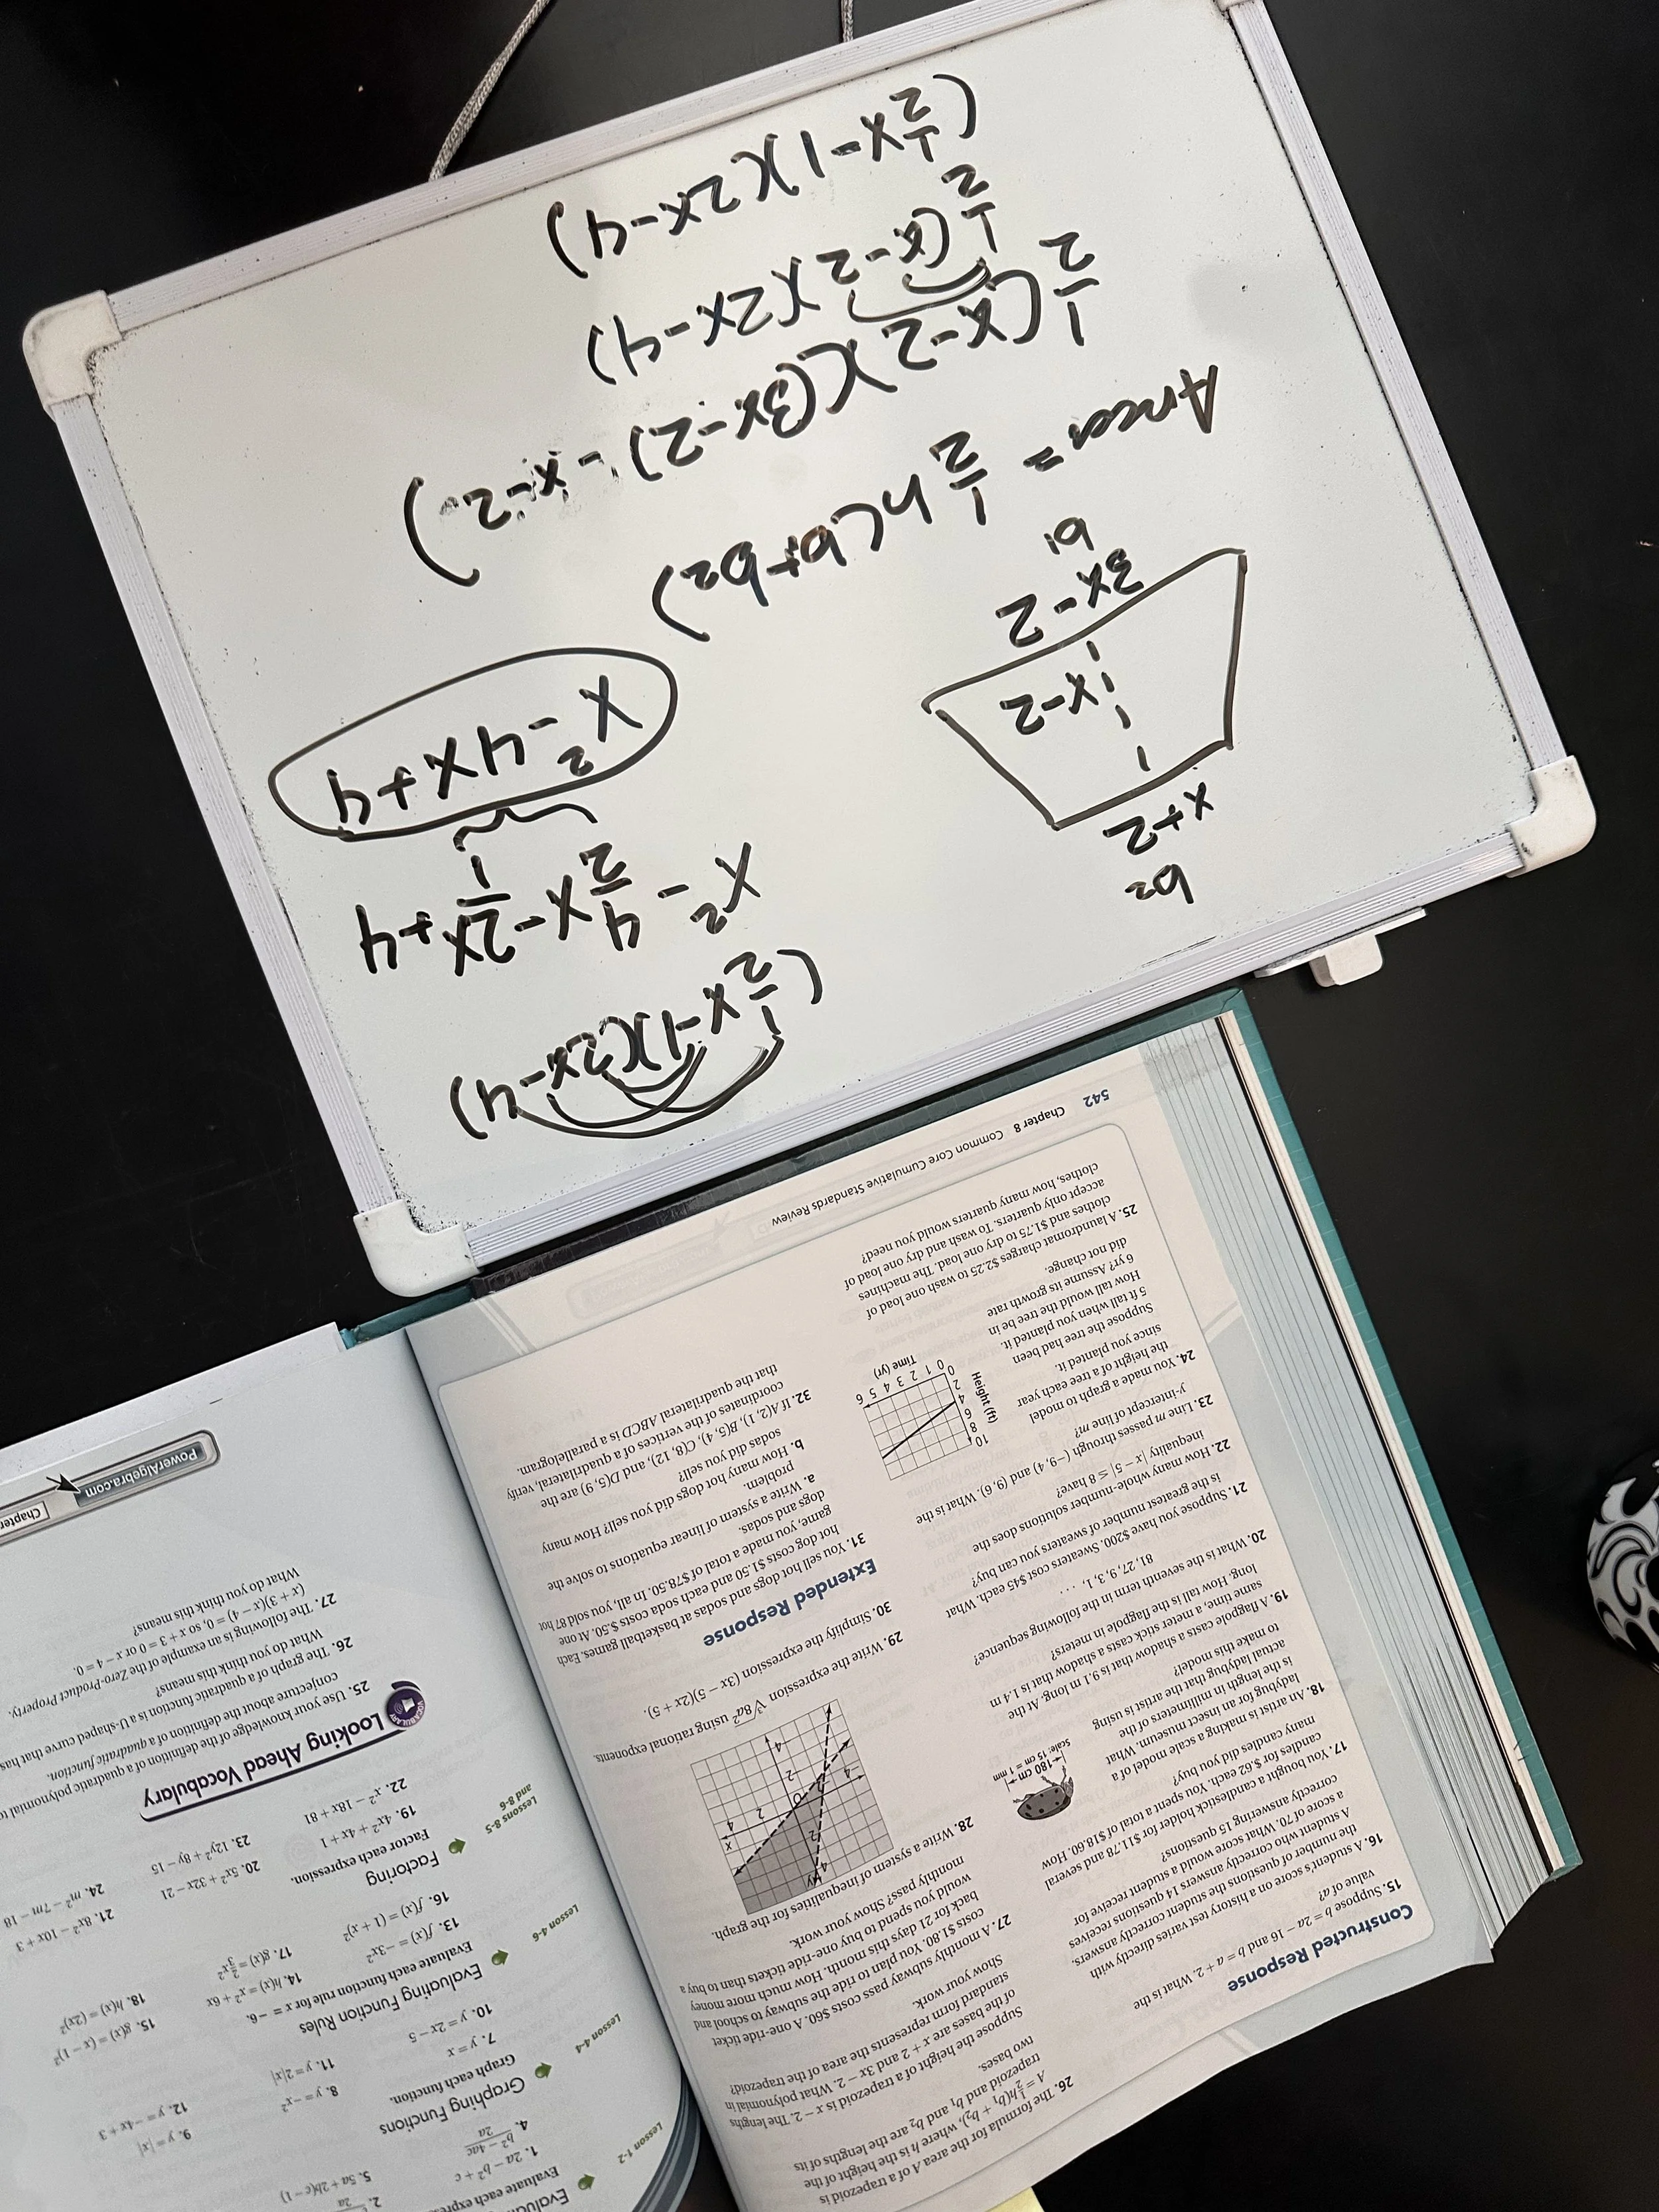 (1/2x-1)(2x-4)
1/2(x-2)(2x-4)
1/2(x-2)((3x-2)-x-2)
Area= 1/2h(b1+b2)
b1
3x-2
x-2
x+2
b2
(1/2x-1)(2x-4)
x²-4/2x-2x+4
x²-4x+4
Constructed Response
15. Suppose b = 2a − 16 and b = a + 2. What is the
value of a?
16. A student's score on a history test varies directly with
the number of questions the student correctly answers.
A student who correctly answers 14 questions receives
a score of 70. What score would a student receive for
correctly answering 15 questions?
17. You bought a candlestick holder for $11.78 and several
candles for $.62 each. You spent a total of $18.60. How
many candles did you buy?
18. An artist is making a scale model of a
ladybug for an insect museum. What
is the length in millimeters of the
actual ladybug that the artist is using
to make this model?
180 cm
Scale: 15 cm = 1 mm
19. A flagpole casts a shadow that is 9.1 m long. At the
same time, a meter stick casts a shadow that is 1.4 m
long. How tall is the flagpole in meters?
20. What is the seventh term in the following sequence?
81, 27, 9, 3, 1, . . .
21. Suppose you have $200. Sweaters cost $45 each. What
is the greatest number of sweaters you can buy?
22. How many whole-number solutions does the
inequality |x − 5| ≤ 8 have?
23. Line m passes through (−9, 4) and (9, 6). What is the
y-intercept of line m?
24. You made a graph to model
the height of a tree each year
since you planted it.
Suppose the tree had been
5 ft tall when you planted it.
How tall would the tree be in
6 yr? Assume its growth rate
did not change.
Height (ft)
10
8
6
4
2
0
0 1 2 3 4 5 6
Time (yr)
25. A laundromat charges $2.25 to wash one load of
clothes and $1.75 to dry one load. The machines
accept only quarters. To wash and dry one load of
clothes, how many quarters would you need?
26. The formula for the area A of a trapezoid is
A = 1/2h(b1 + b2), where h is the height of the
trapezoid and b1 and b2 are the lengths of its
two bases.
Suppose the height of a trapezoid is x − 2. The lengths
of the bases are x + 2 and 3x − 2. What polynomial in
standard form represents the area of the trapezoid?
Show your work.
27. A monthly subway pass costs $60. A one-ride ticket
costs $1.80. You plan to ride the subway to school and
back for 21 days this month. How much more money
would you spend to buy one-ride tickets than to buy a
monthly pass? Show your work.
28. Write a system of inequalities for the graph.
29. Write the expression ∛8a² using rational exponents.
30. Simplify the expression (3x − 5)(2x + 5).
Extended Response
31. You sell hot dogs and sodas at basketball games. Each
hot dog costs $1.50 and each soda costs $.50. At one
game, you made a total of $78.50. In all, you sold 87 hot
dogs and sodas.
a. Write a system of linear equations to solve the
problem.
b. How many hot dogs did you sell? How many
sodas did you sell?
32. If A(2, 1), B(5, 4), C(8, 12), and D(5, 9) are the
coordinates of the vertices of a quadrilateral, verify
that the quadrilateral ABCD is a parallelogram.
542 Chapter 8 Common Core Cumulative Standards Review
Lesson 1-2
Evaluate each expre
1. 2a − b² + c
4. b² − 4ac / 2a
5. 5a + 2b(c − 1)
Lesson 4-4
Graphing Functions
Graph each function.
7. y = x
8. y = −x²
9. y = |x|
10. y = 2x − 5
11. y = 2|x|
12. y = −4x + 3
Lesson 4-6
Evaluating Function Rules
Evaluate each function rule for x = −6.
13. f(x) = −3x²
14. h(x) = x² + 6x
15. g(x) = (x − 1)²
16. f(x) = (1 + x)²
17. g(x) = 2/3x²
18. h(x) = (2x)²
Lessons 8-5
and 8-6
Factoring
Factor each expression.
19. 4x² + 4x + 1
20. 5x² + 32x − 21
21. 8x² − 10x + 3
22. x² − 18x + 81
23. 12y² + 8y − 15
24. m² − 7m − 18
VOCABULARY
Looking Ahead Vocabulary
25. Use your knowledge of the definition of a quadratic polynomial to
conjecture about the definition of a quadratic function.
26. The graph of a quadratic function is a U-shaped curve that has
What do you think this means?
27. The following is an example of the Zero-Product Property.
(x + 3)(x − 4) = 0, so x + 3 = 0 or x − 4 = 0.
What do you think this means?
PowerAlgebra.com
Chapter